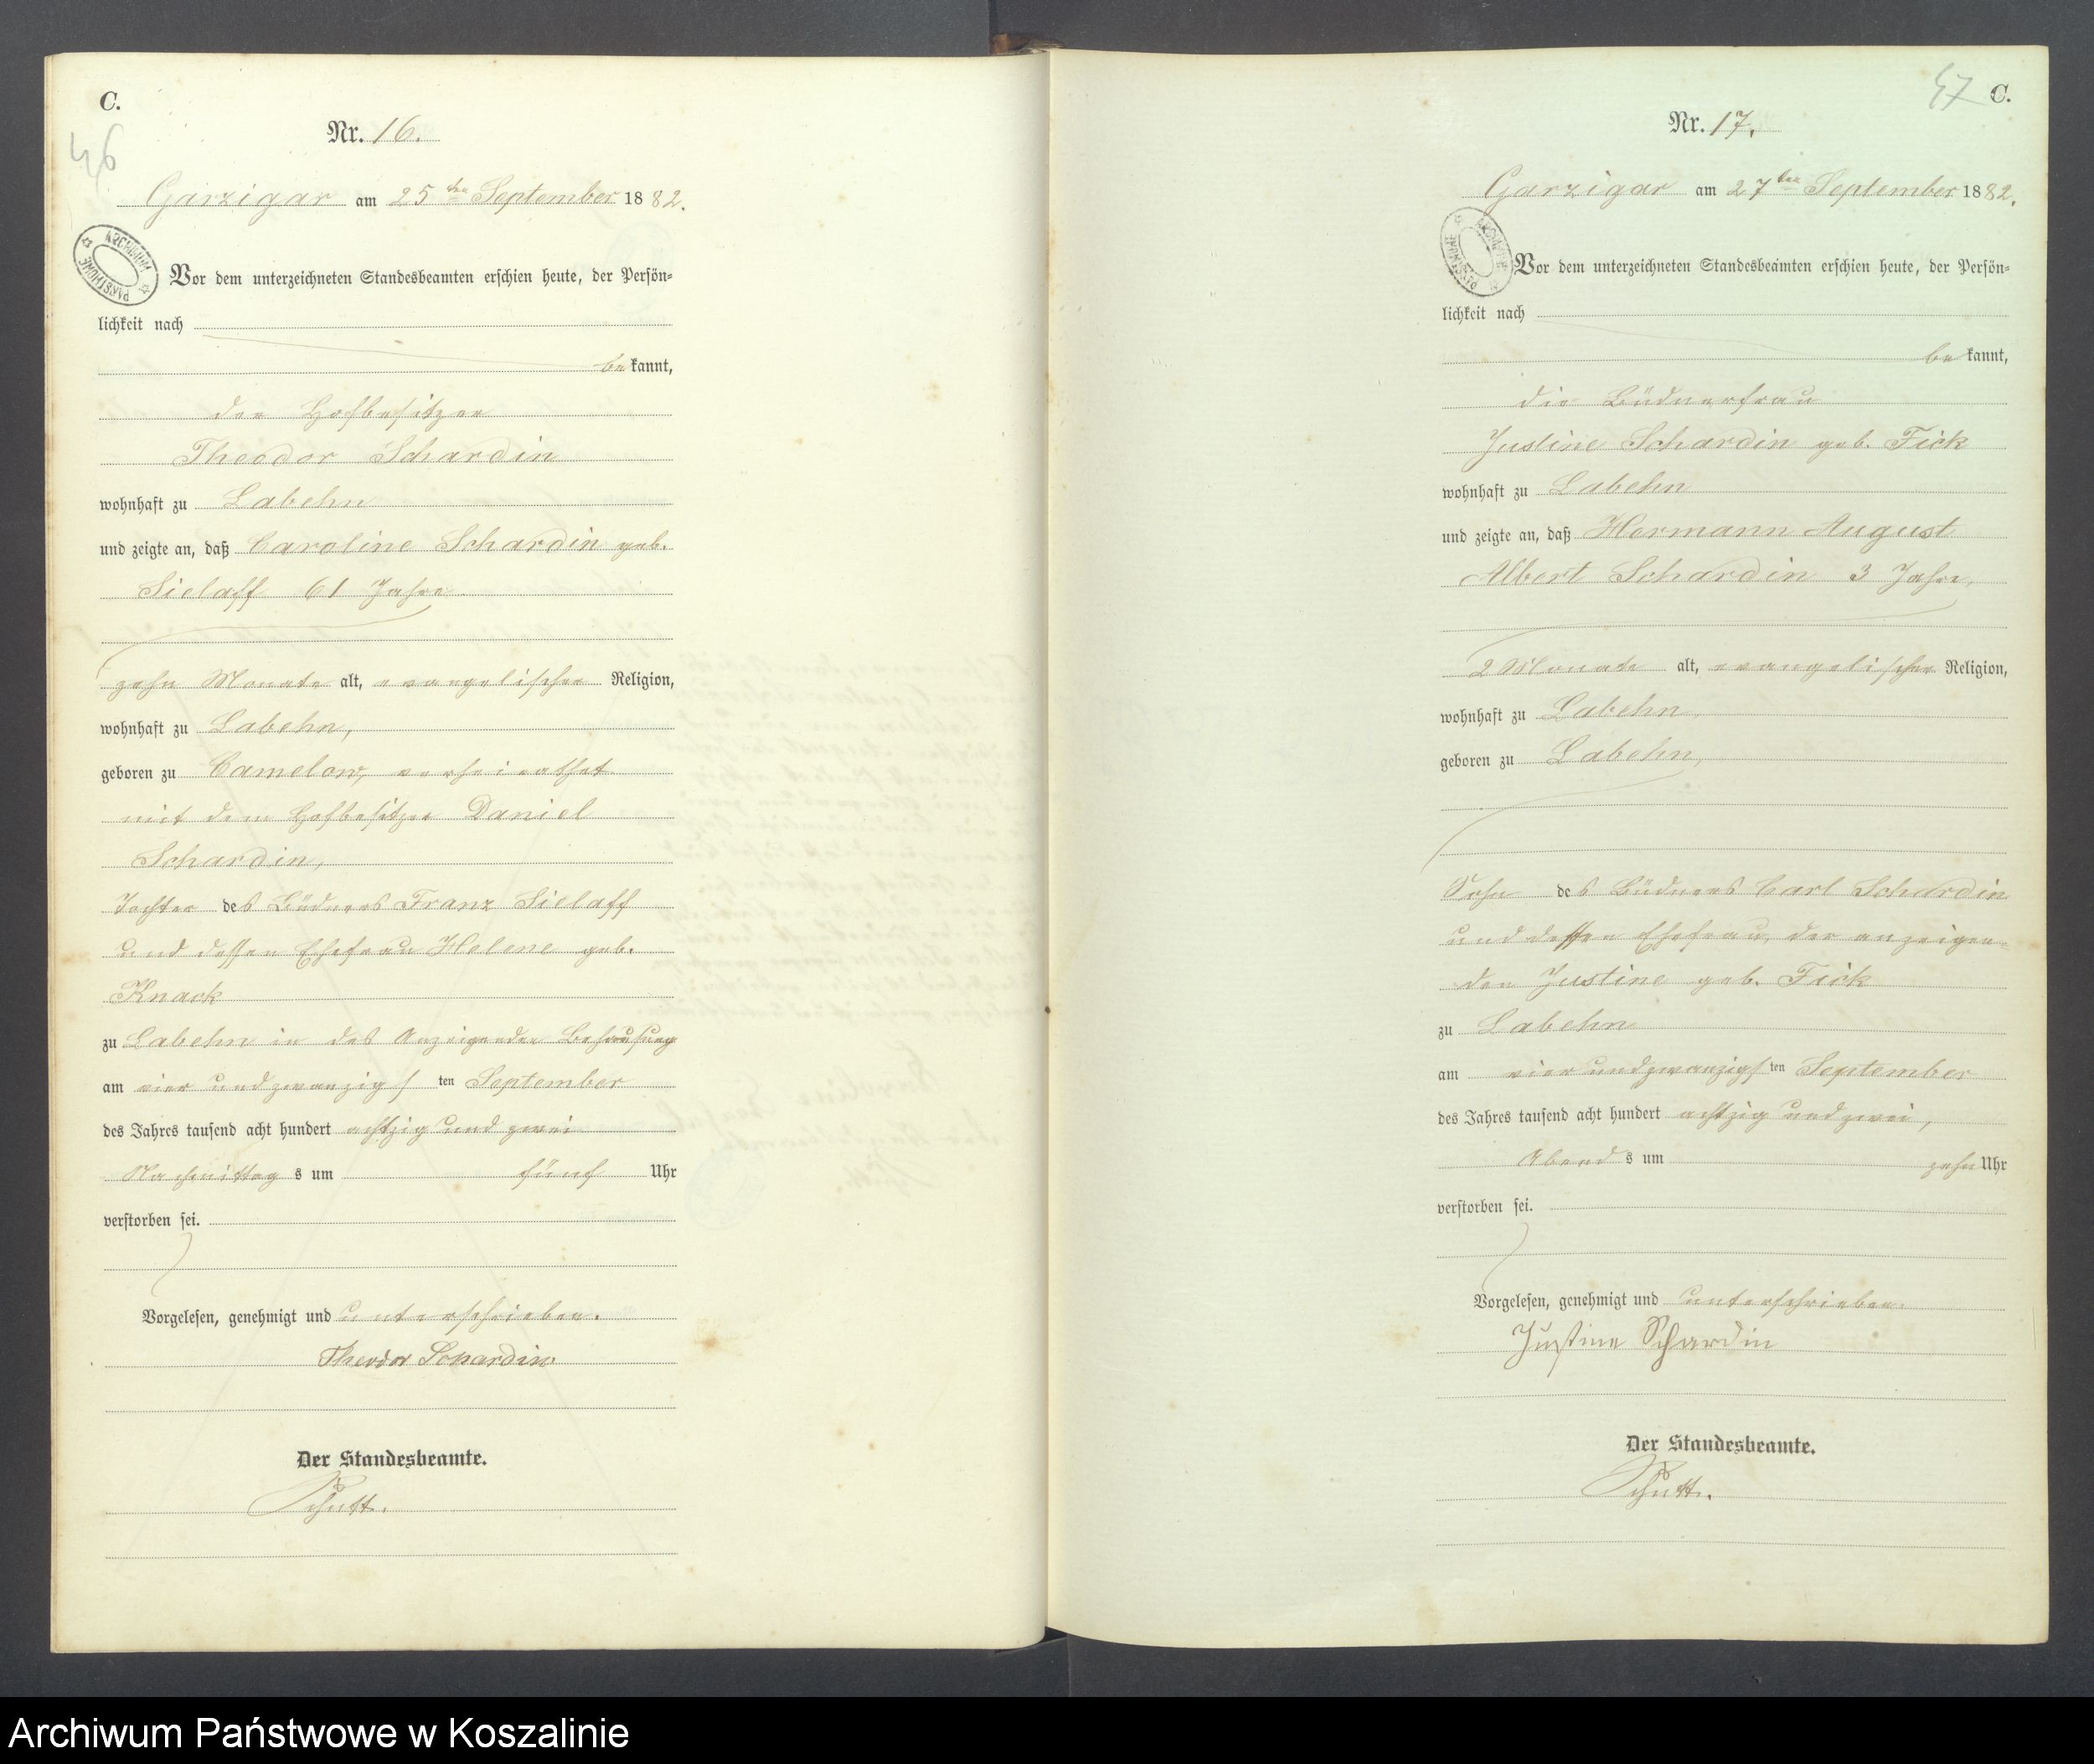 C.
46
Nr. 16.
Garzigar am 25ten September 1882.
ARCHIWUM PAŃSTWOWE
Vor dem unterzeichneten Standesbeamten erschien heute, der Persön-
lichkeit nach
bekannt,
der Hofbesitzer
Theodor Schardin
wohnhaft zu Labehn
und zeigte an, daß Caroline Schardin geb.
Sielaff 61 Jahre
zehn Monate alt, evangelischer Religion,
wohnhaft zu Labehn,
geboren zu Camelow, verheirathet
mit dem Hofbesitzer Daniel
Schardin,
Tochter des Büdners Franz Sielaff
und dessen Ehefrau Helene geb.
Knack
zu Labehn in des Anzeigenden Behausung
am vier und zwanzigsten September
des Jahres tausend acht hundert achtzig und zwei
Nachmittags um fünf Uhr
verstorben sei.
Vorgelesen, genehmigt und unterschrieben.
Theodor Schardin
Der Standesbeamte.
Schutt.
47 C.
Nr. 17.
Garzigar am 27ten September 1882.
ARCHIWUM PAŃSTWOWE
Vor dem unterzeichneten Standesbeamten erschien heute, der Persön-
lichkeit nach
bekannt,
die Büdnerfrau
Justine Schardin geb. Fick
wohnhaft zu Labehn
und zeigte an, daß Hermann August
Albert Schardin 3 Jahre,
2 Monate alt, evangelischer Religion,
wohnhaft zu Labehn,
geboren zu Labehn,
Sohn des Büdners Carl Schardin
und dessen Ehefrau, der anzeigen-
den Justine geb. Fick
zu Labehn
am vier und zwanzigsten September
des Jahres tausend acht hundert achtzig und zwei,
Abends um zehn Uhr
verstorben sei.
Vorgelesen, genehmigt und unterschrieben.
Justine Schardin
Der Standesbeamte.
Schutt.
Archiwum Państwowe w Koszalinie